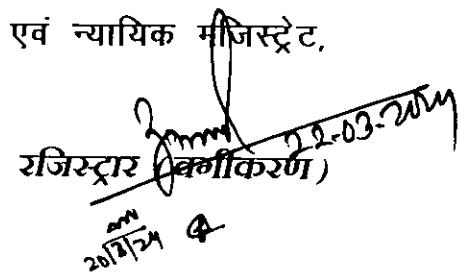 एवं न्यायिक मजिस्ट्रेट,
22-03-2024
रजिस्ट्रार (वर्गीकरण)
20/3/24